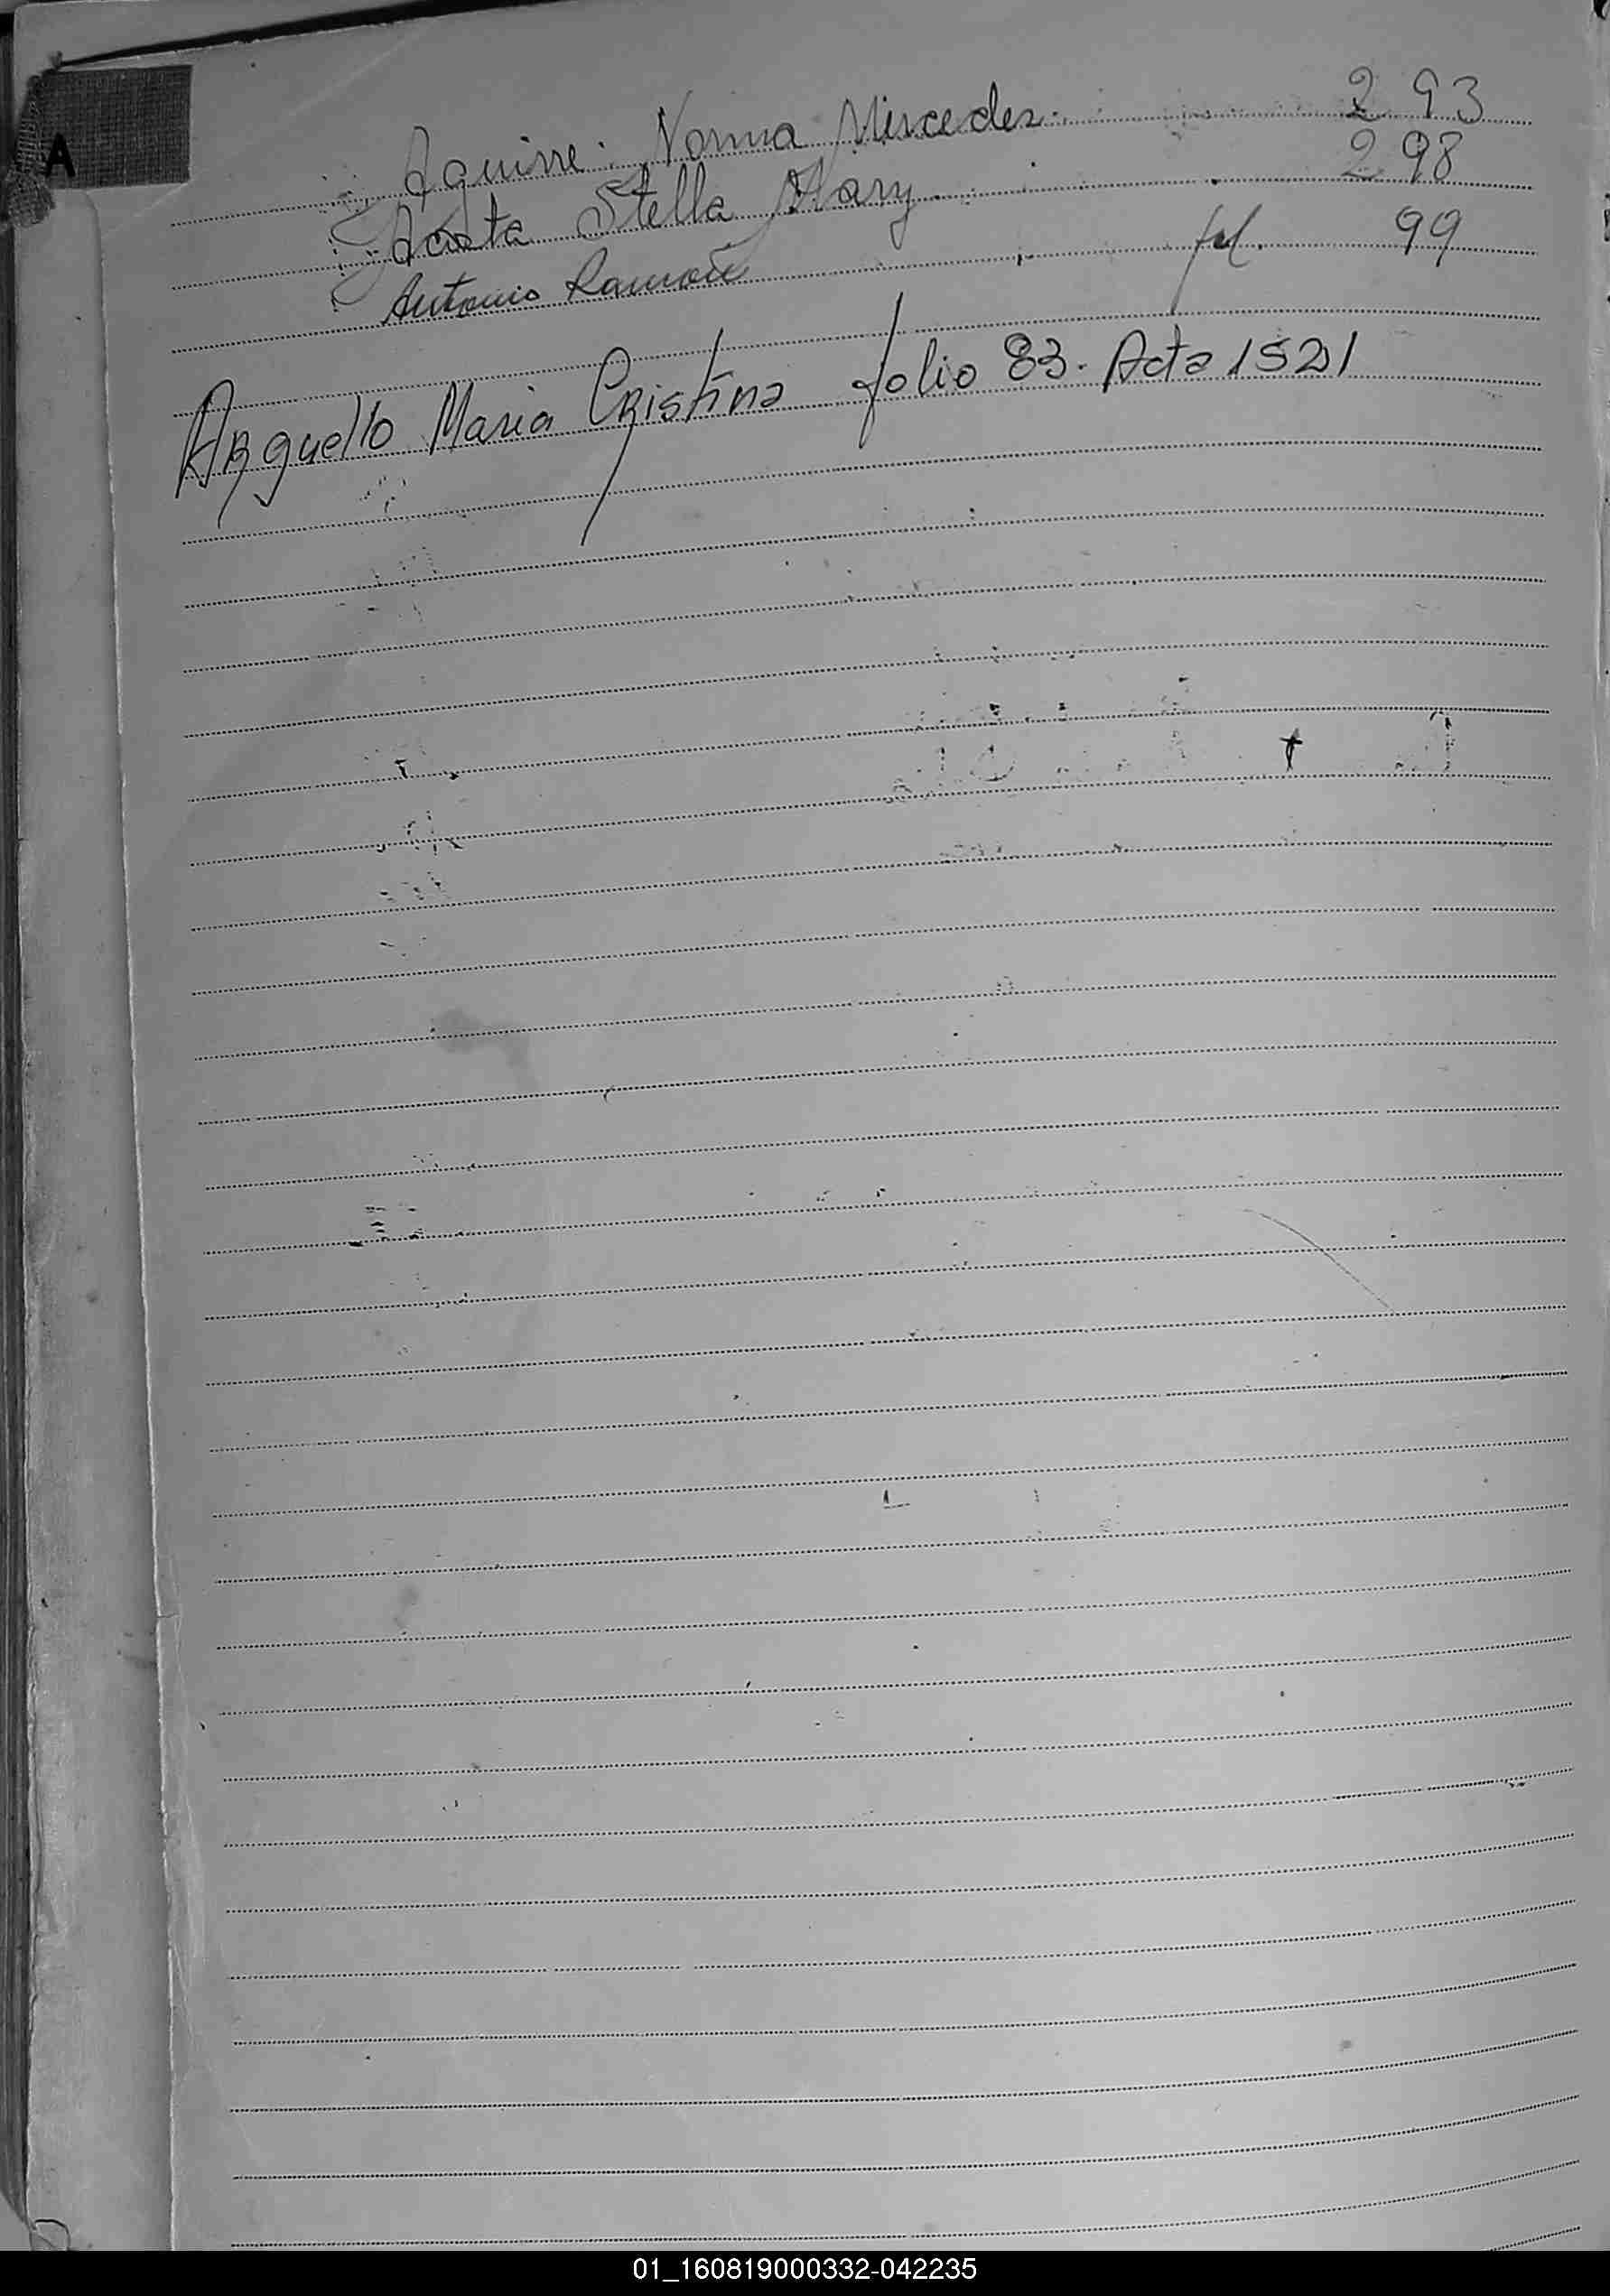 A
Aguirre Norma Mercedes 293
Acosta Stella Mary 298
Antonio Ramón fol. 99
ARguello Maria CRistina folio 83. Acta 1521
01_160819000332-042235